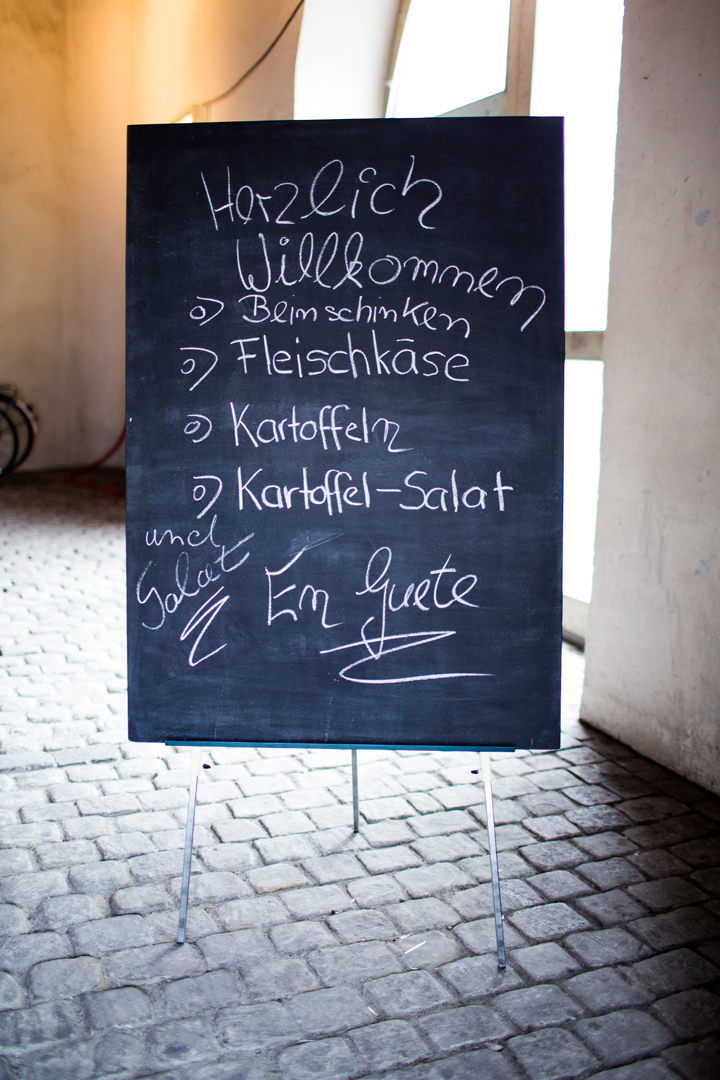 Herzlich
Willkommen
o) Beinschinken
o) Fleischkäse
o) Kartoffeln
o) Kartoffel-Salat
und
Salat
En Guete